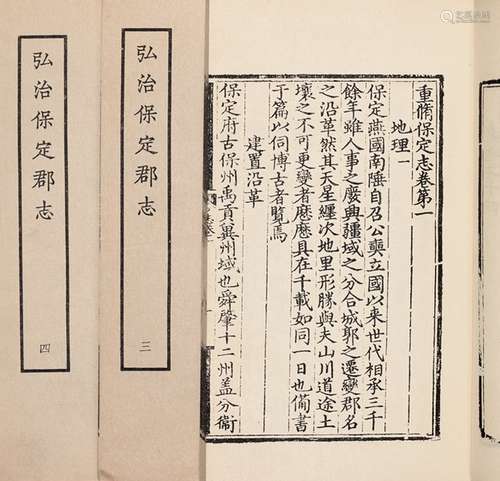 重脩保定志卷第一
地理一
保定燕國南陲自召公奭立國以來世代相承三千
餘年雖人事之廢興疆域之分合城郭之遷變郡名
之沿革然其天星纏次地里形勝與夫山川道途土
壤之不可更變者歷歷具在千載如同一日也備書
于篇以伺博古者覽焉
建置沿革
保定府古保州禹貢兾州域也舜肇十二州盖分衞
弘治保定郡志
三
弘治保定郡志
四